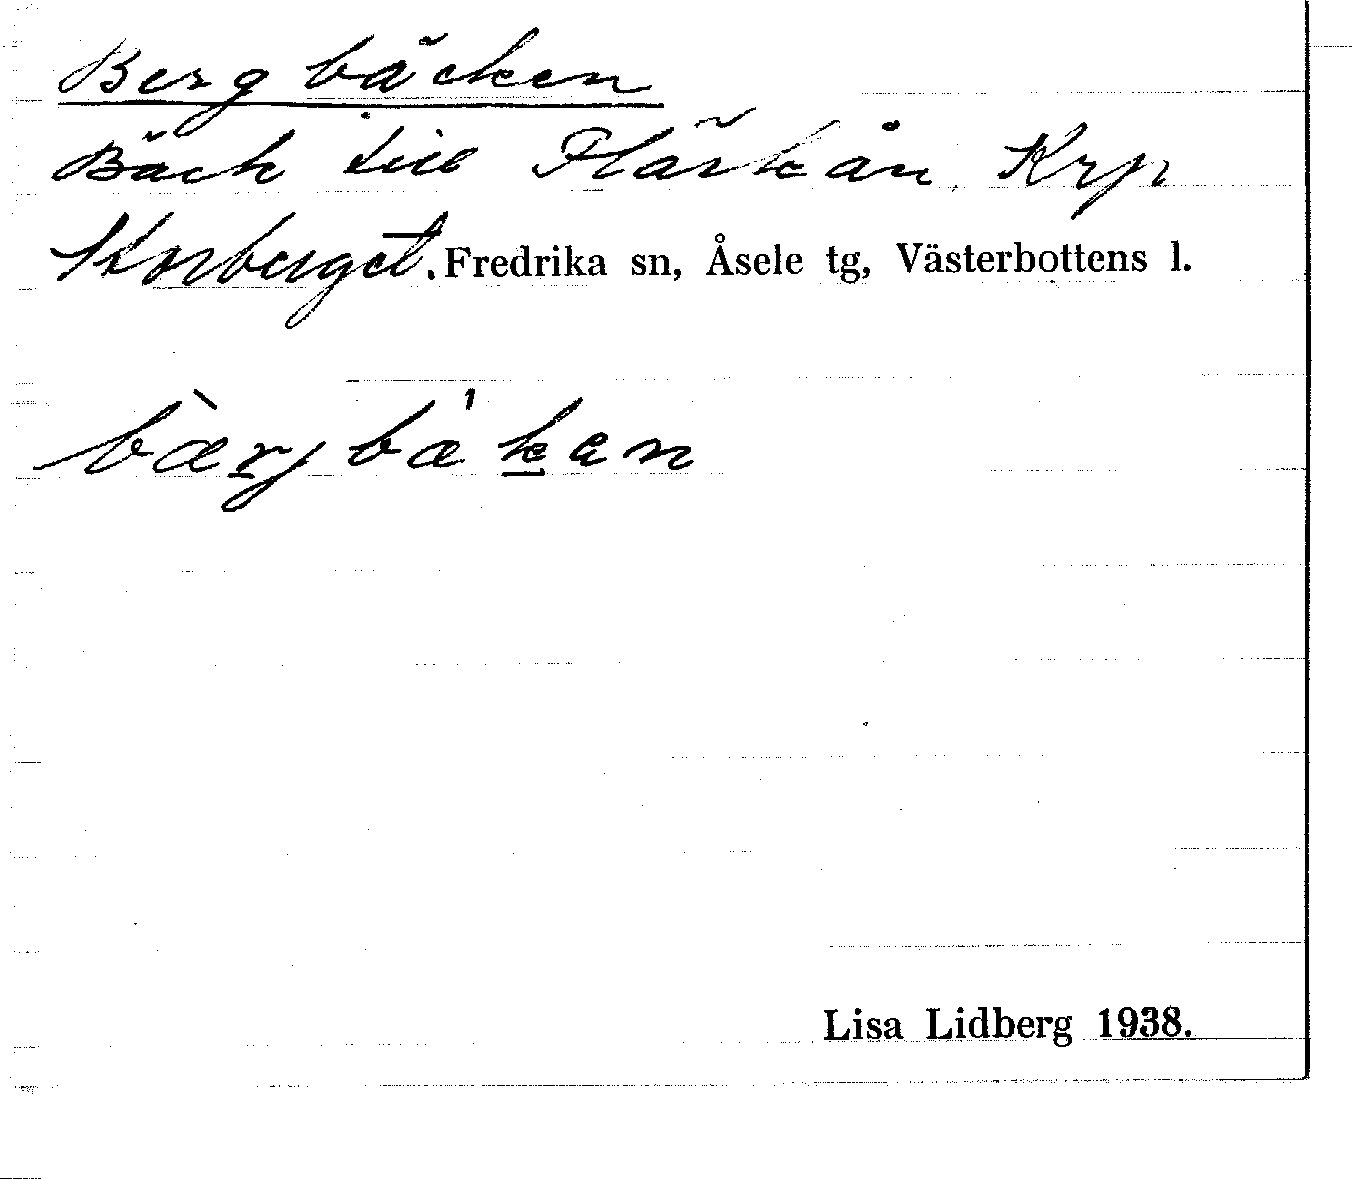 Bergbäcken
Bäck till Flärkån, Krp
Storberget. Fredrika sn, Åsele tg, Västerbottens l.
bæ̀rjbæ'ken
Lisa Lidberg 1938.